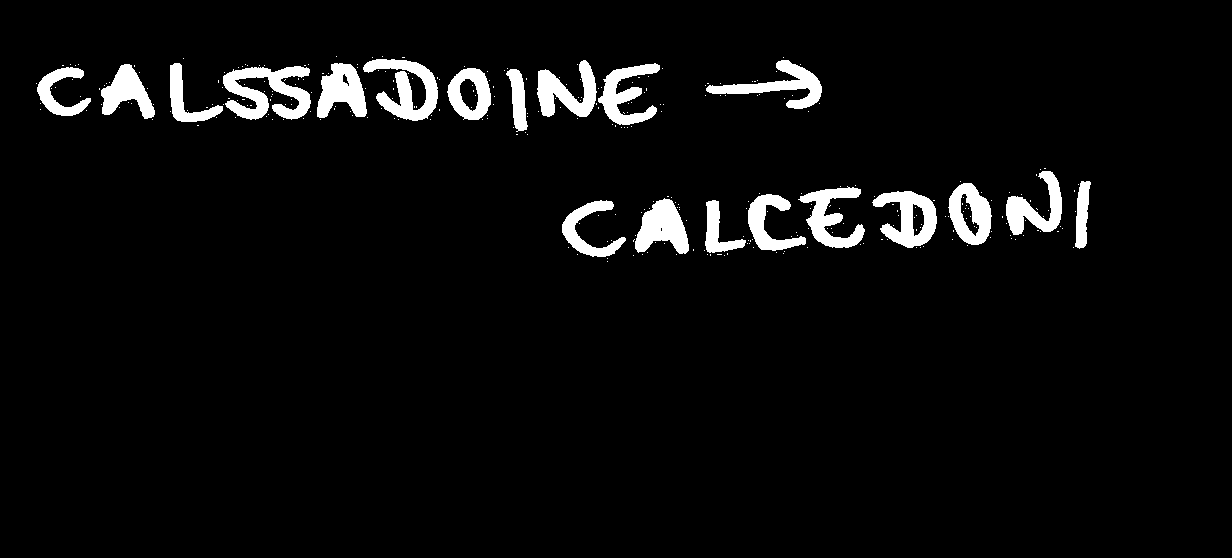 CALSSADOINE →
CALCEDONI